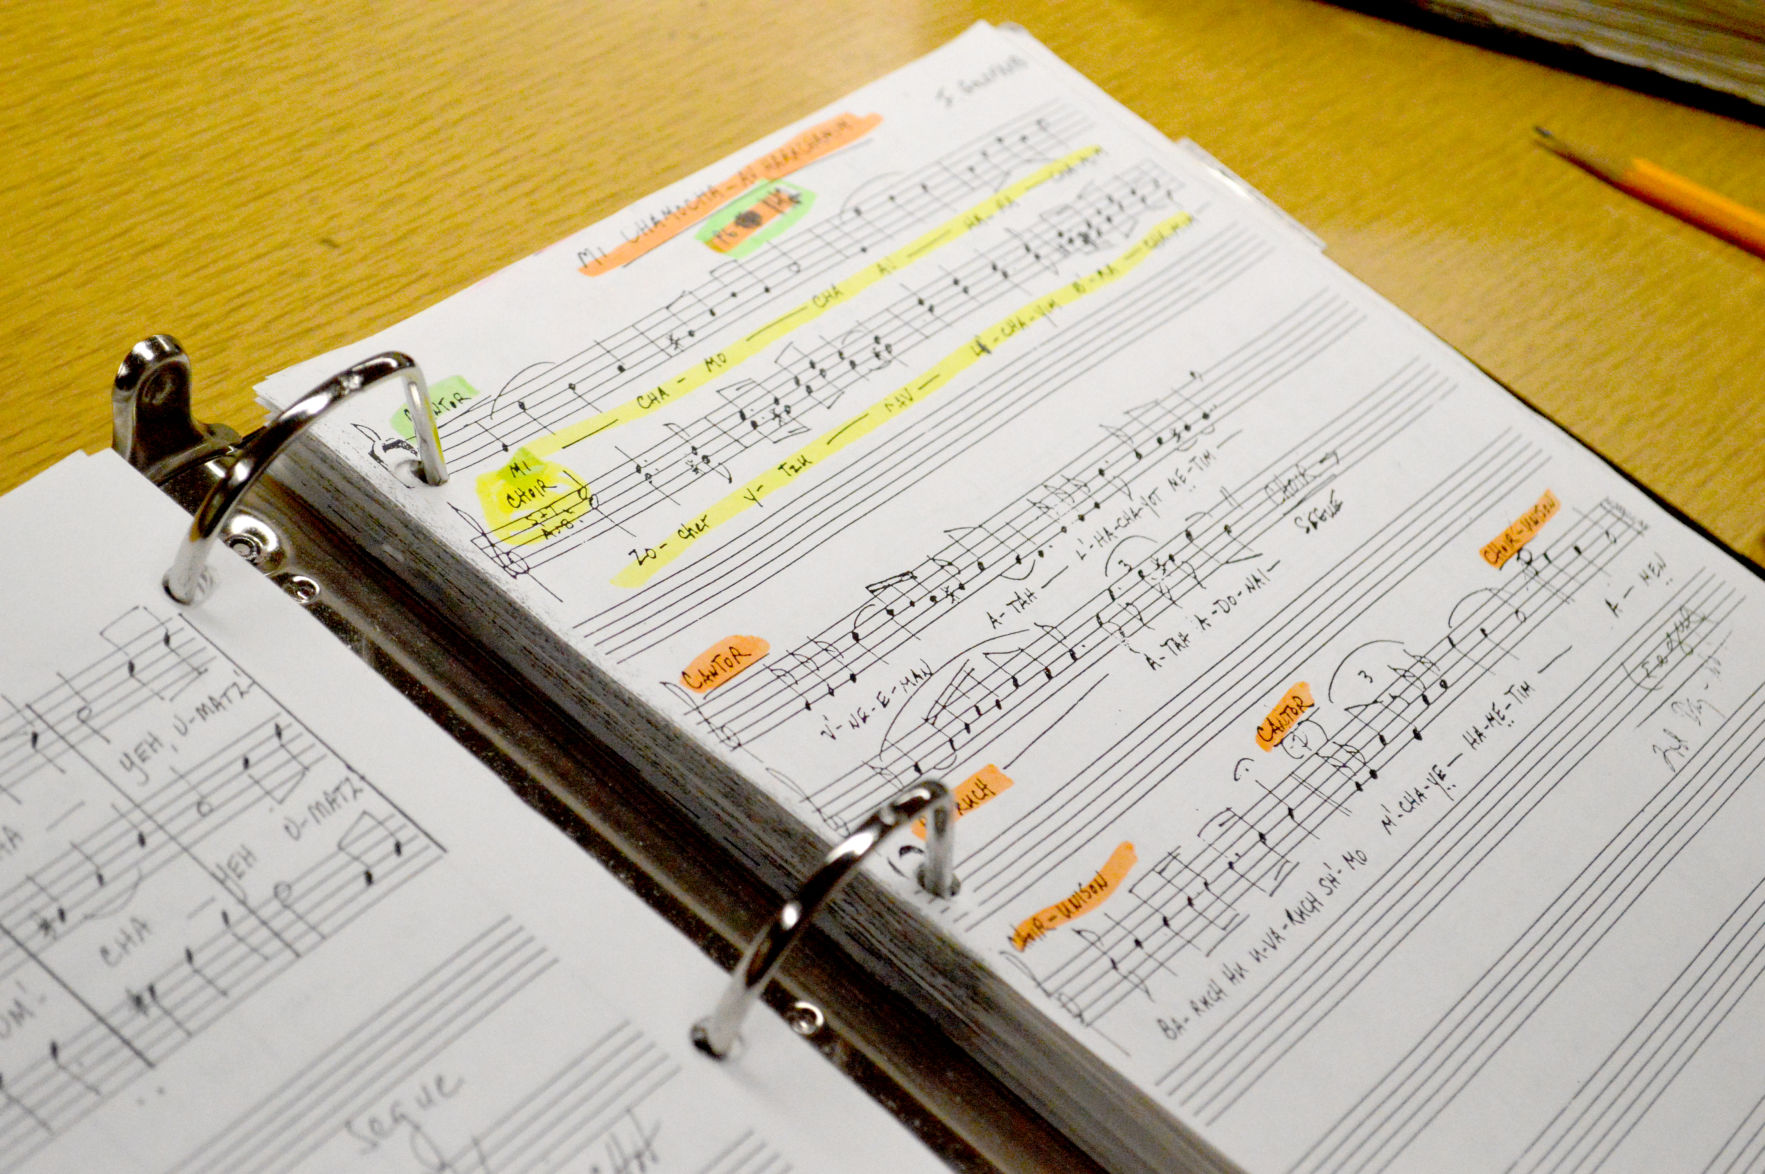 YEH, U-MATZ
CHA
YEH U-MATZ
segue
MI CHAMOCHA - AV HARACHAMIM
CANTOR
MI CHA - MO CHA AV HA - RA CHA-MIM
CHOIR
S+T.
A+B.
ZO - cher Y - TZU RAV L' - CHA - YIM B' - RA - CHA-MIM
CANTOR
V' - NE - E - MAN A - TAH L' - HA - CHA - YOT ME - TIM
CHOIR →
SEGUE
A - TAH A - DO - NAI
CANTOR
CHOIR-UNISON
3
M' - CHA - YE HA - ME - TIM A - MEN
CHOIR-UNISON
BA - RUCH HU U - VA - RUCH SH' - MO